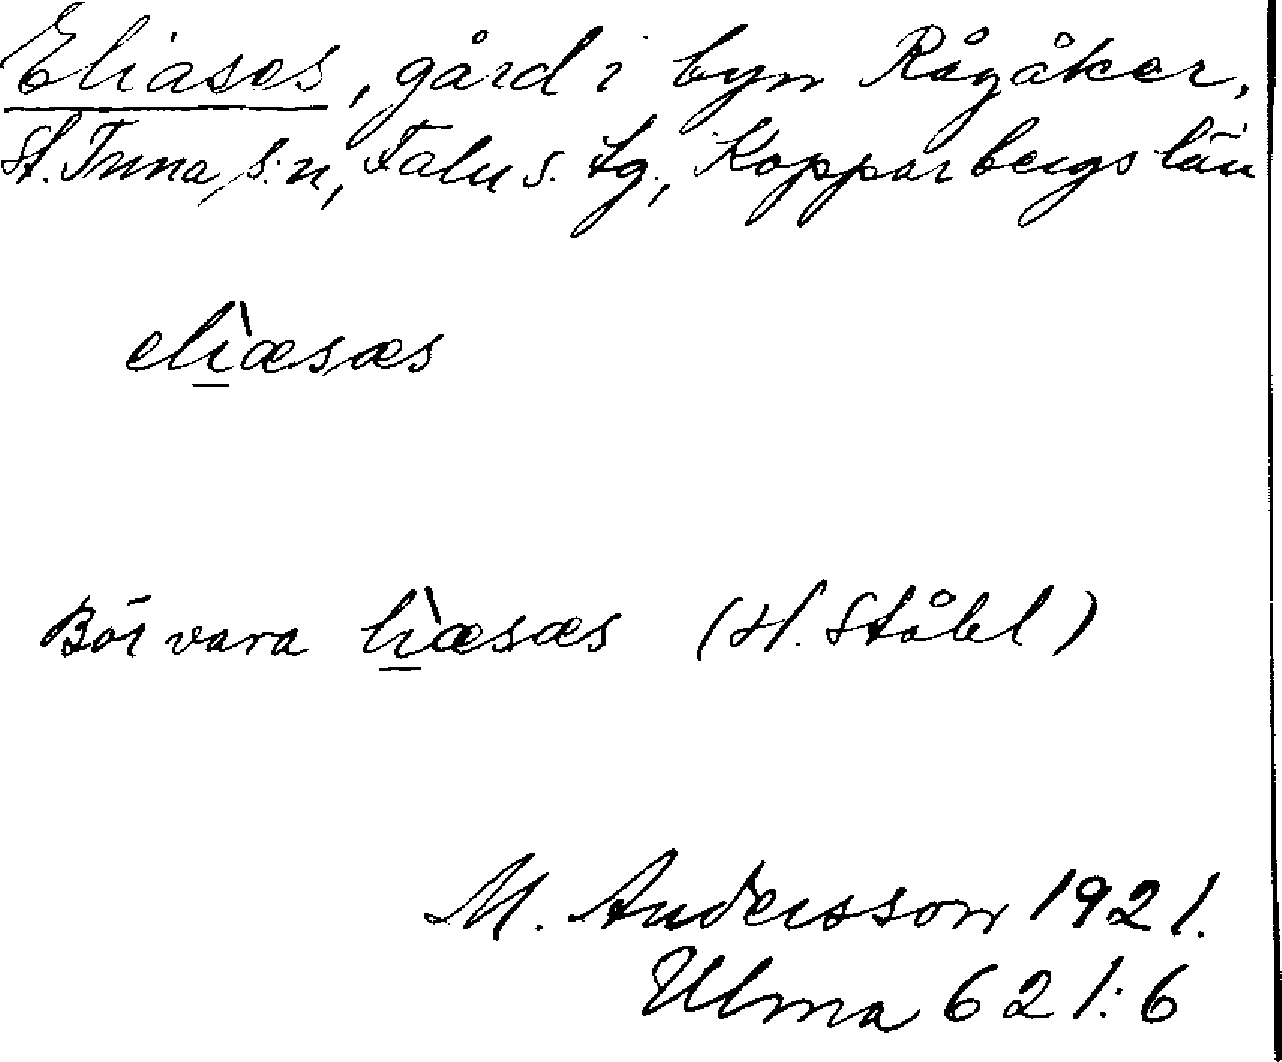 Eliases, gård i byn Rågåker,
St. Tuna s:n, Falu s. tg., Kopparbergs län
elì̲æsæs
Bör vara lì̲æsæs (H. Ståhl)
M. Andersson 1921.
Ulma 621:6